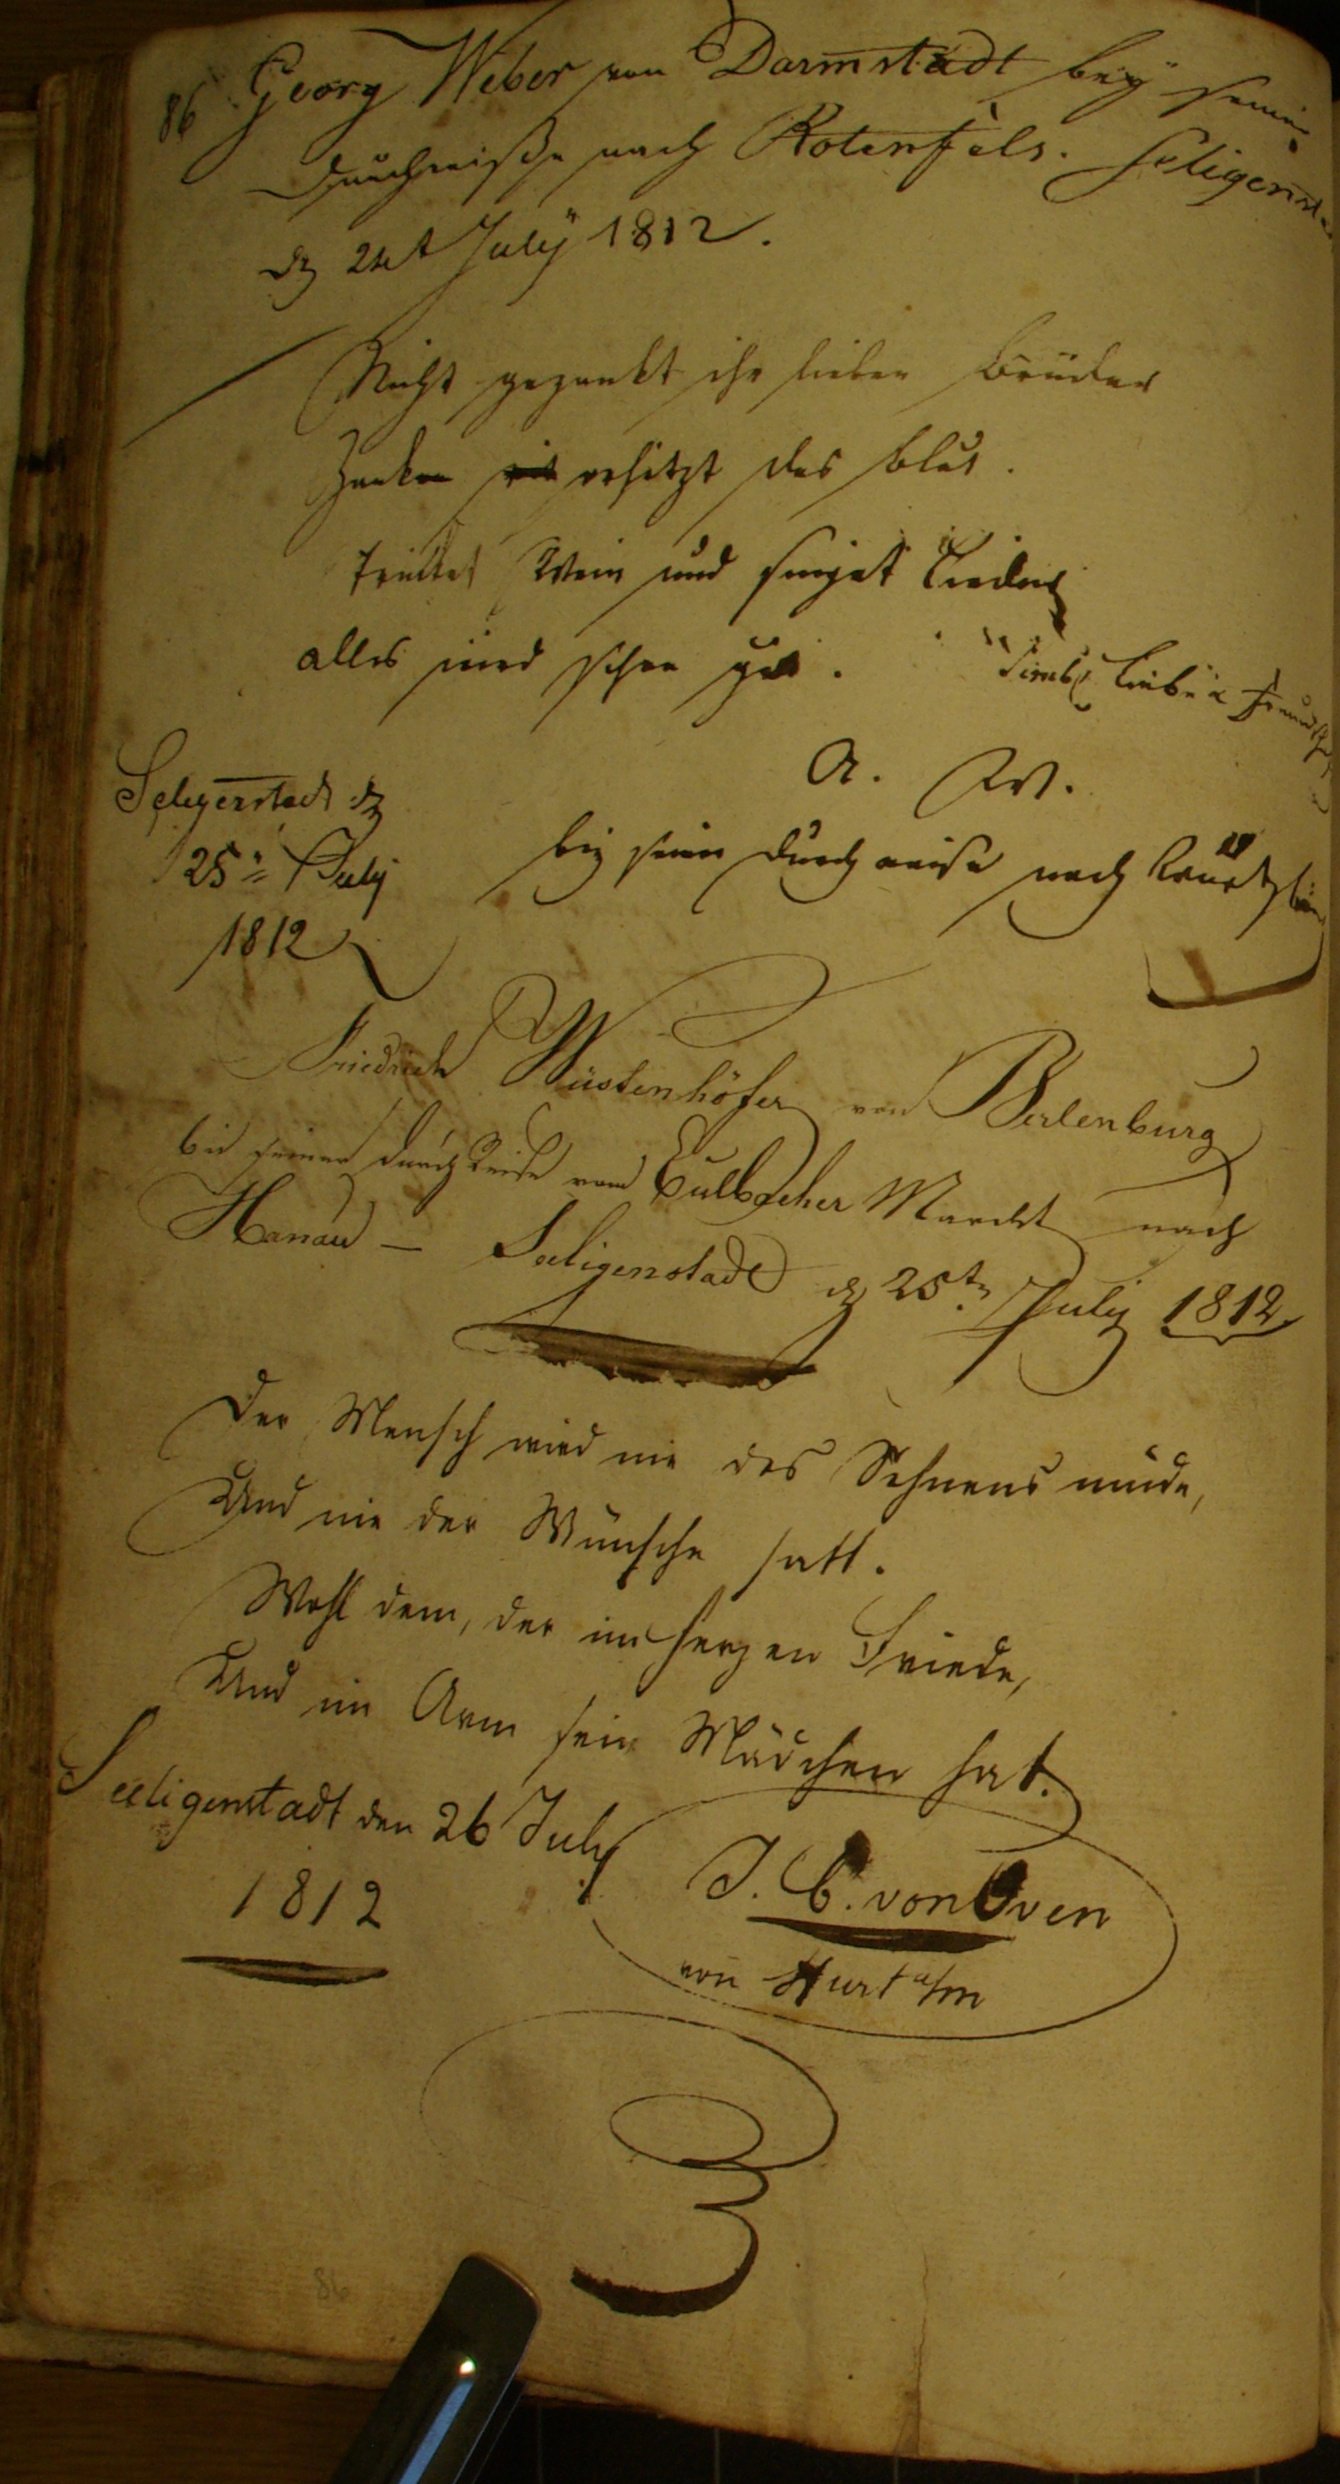 86 Georg Weber von Darmstadt bey seiner
Durchreiße nach Rotenfels. Seligenst
dn 24t Julÿ 1812.
Nicht gezankt ihr lieben Brüder
Zanken erhitzt das Blut.
Trinket Wein und singet Lieder
alles wird schon gut.
Liebe u Freundsch
A. W.
Seligenstadt dn
25n July
1812
bey seiner Durchreise nach
Friedrich Wüstenhöfer von Berlenburg
bei seiner Durch Reise vom Eulbacher Marckt nach
Hanau – Seeligenstadt dn 25tn July 1812.
Der Mensch wird nie des Sehnens müde,
Und nie der Wünsche satt.
Wohl dem, der im Herzen Friede,
Und im Arm sein Mädchen hat.
Seeligenstadt den 26 July
1812
J. C. von Oven
von a/m
86